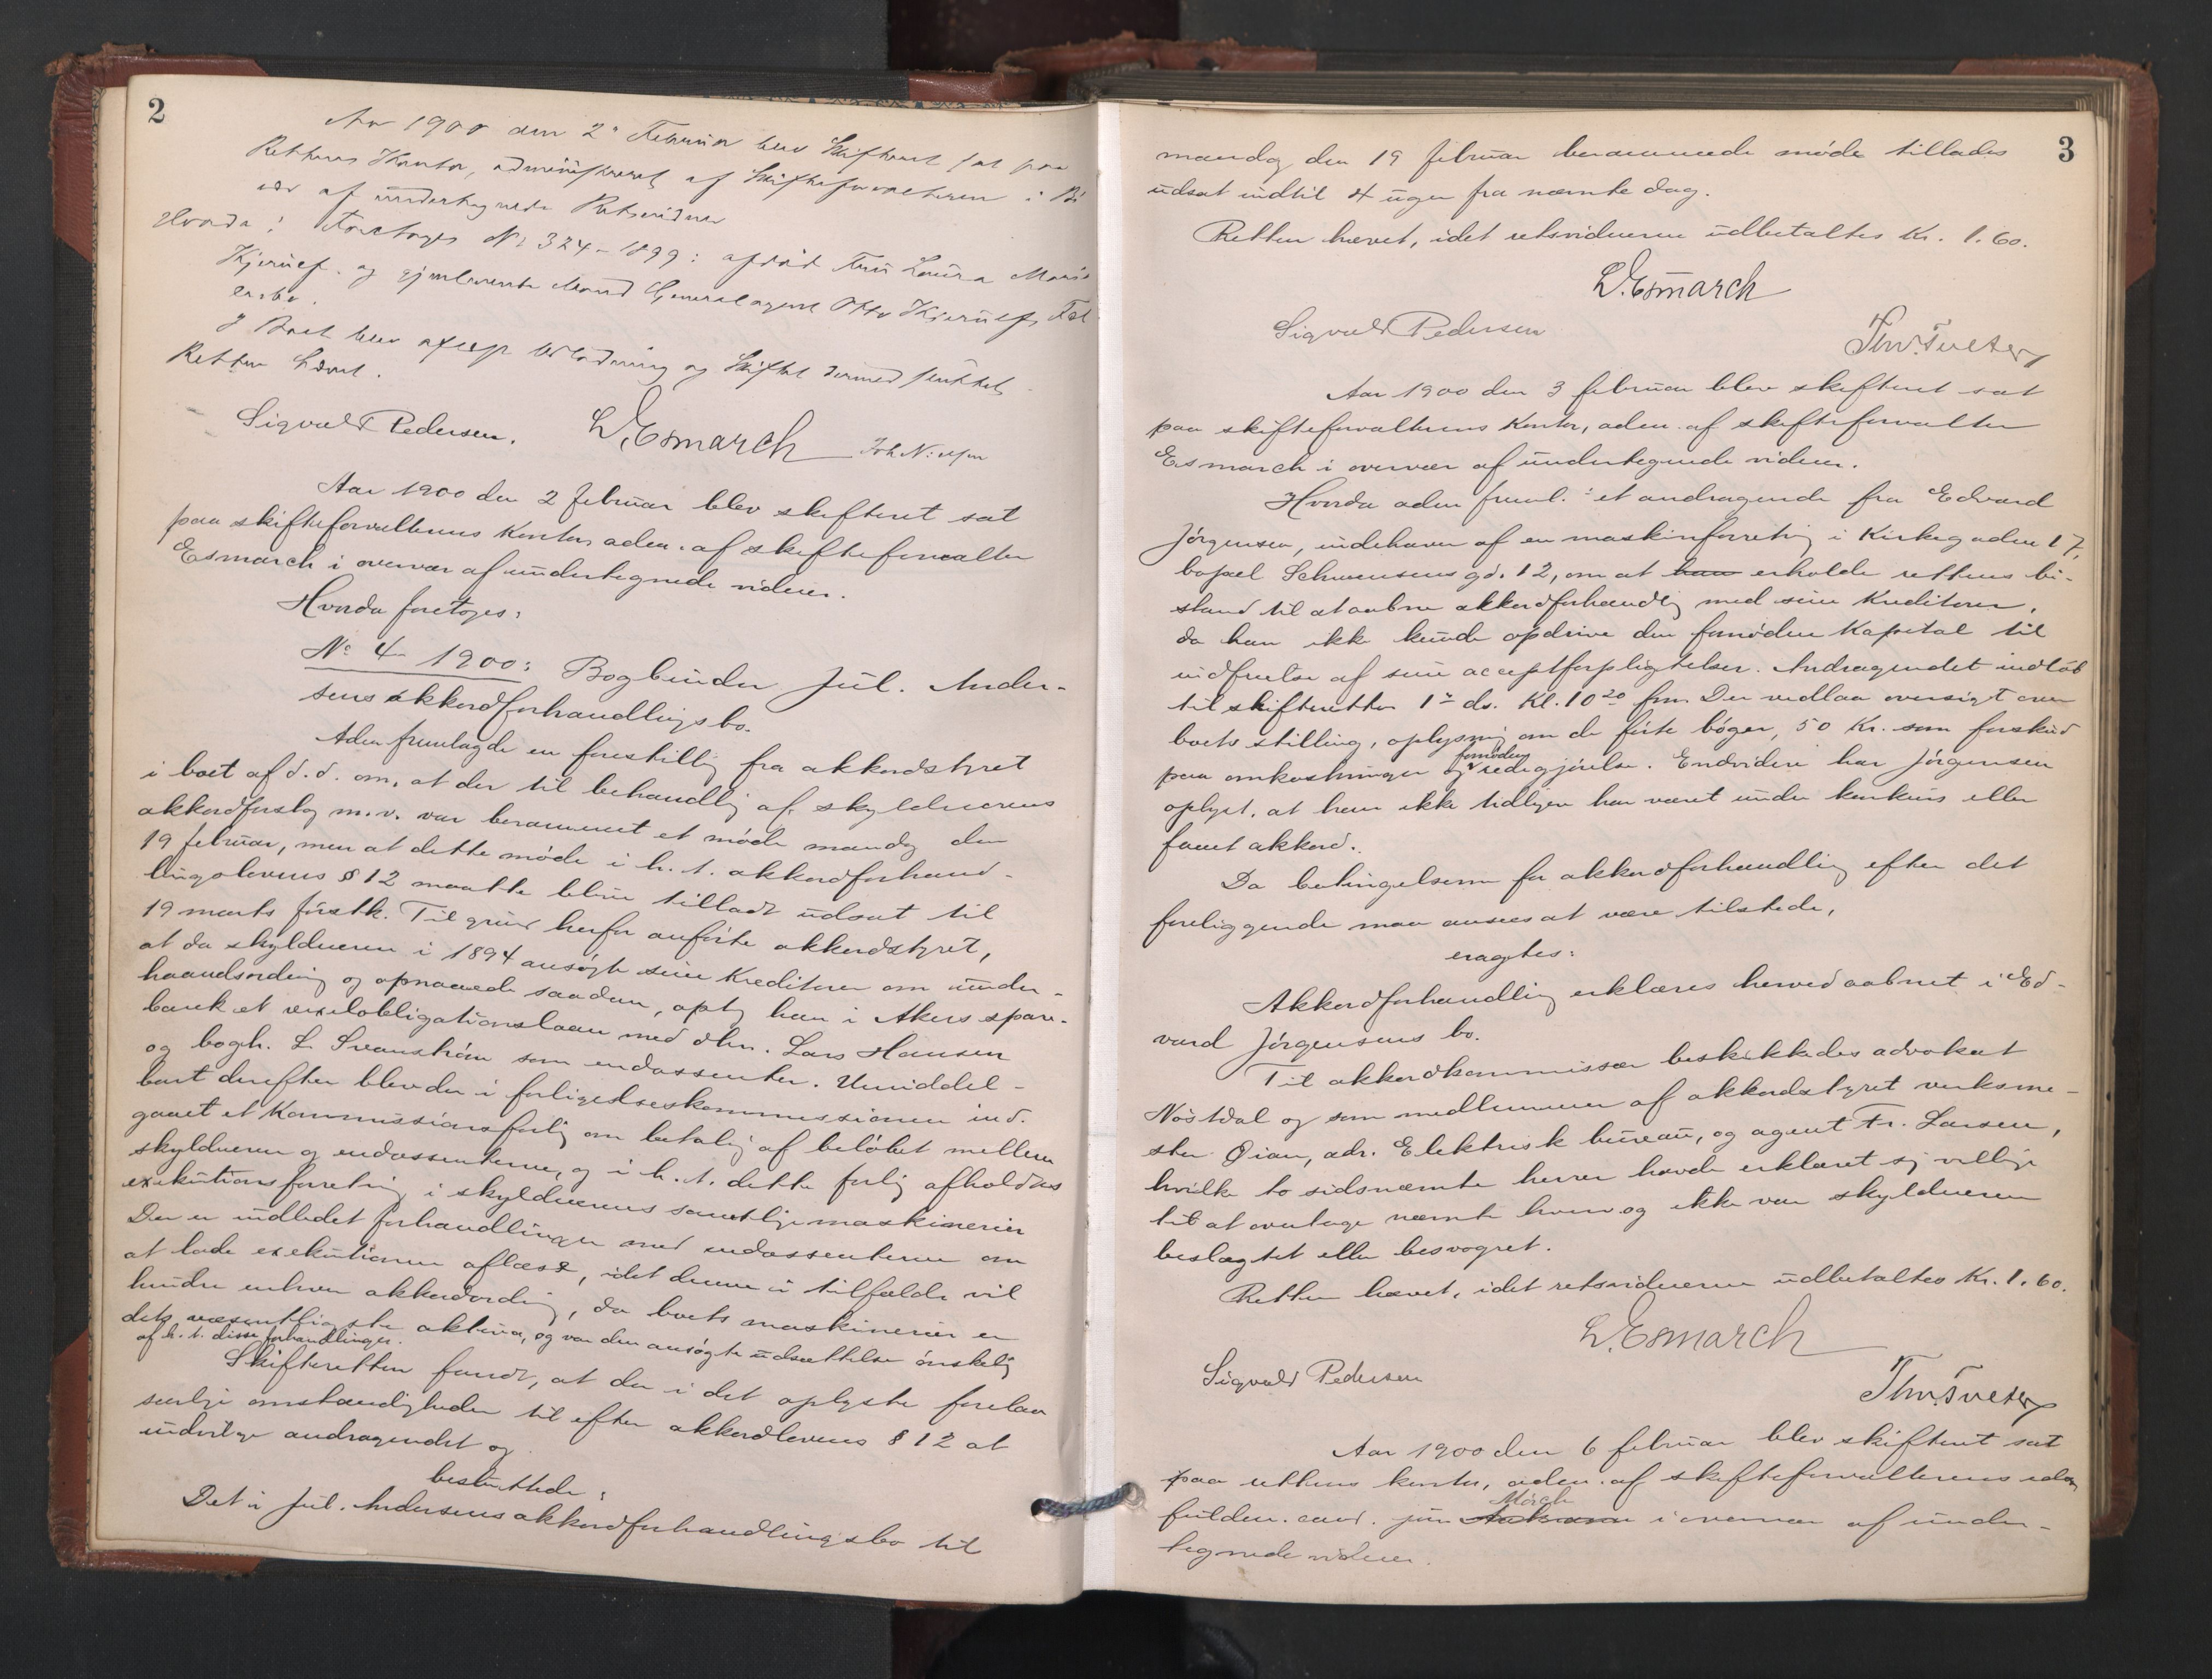 2
Aar 1900 den 2 Februar blev Skifteret sat paa
Rettens Kontor, administreret af Skifteforvalteren i Bi
vær af undertegnede Retsvidner
Hvorda: Foretoges No 324-1899: afdød Fru Laura Marie
Kjerulf og gjenlevende Mand Generalagent Otto Kjerulfs Fæl
lesbo.
I Boet blev afsagt Udlodning og Skiftet dermed sluttet.
Retten hævet.
Sigvald Pedersen. L. Esmarch Joh Nielsen
Aar 1900 den 2 februar blev skifteret sat
paa skifteforvalterens kontor, adm. af skifteforvalter
Esmarch i overvær af undertegnede vidner.
Hvorda foretoges:
No 4 - 1900: Bogbinder Jul. Ander-
sens akkordforhandlingsbo.
Adm fremlagde en forestilling fra akkordstyret
i boet af d. d. om, at der til behandling af skyldnerens
akkordforslag m. v. var berammet et møde mandag den
19 februar, men at dette møde i h. t. akkordforhand-
lingslovens § 12 maatte blive tilladt udsat til
19 marts førstk. Til grund herfor anførte akkordstyret,
at da skyldneren i 1894 ansøgte sine kreditorer om under-
haandsordning og opnaaede saadan, optog han i Akers spare-
bank et vexelobligationslaan med dhrr. Lars Hansen
og bogh. L. Svanström som endossenter. Umiddel-
bart derefter blev der i forligelseskommissionen ind-
gaaet et kommissionsforlig om betaling af beløbet mellem
skyldneren og endossenterne, og i h. t. dette forlig afholdtes
exekutionsforretning i skyldnerens samtlige maskinerier
Der er indledet forhandlinger med endossenterne om
at lade exekutionen aflæst, idet denne i tilfælde vil
hindre enhver akkordordning, da boets maskinerier er
dets væsentligste aktiva, og var den ansøgte udsættelse ønskelig
af h. t. disse forhandlinger.
Skifteretten fandt, at der i det oplyste forelaa
særlige omstændigheder til efter akkordlovens § 12 at
indvilge andragendet og
besluttede:
Det i Jul. Andersens akkordforhandlingsbo til
3
mandag den 19 februar berammede møde tillades
udsat indtil 4 uger fra nævnte dag.
Retten hævet, idet retsvidnerne udbetaltes Kr. 1.60.
L. Esmarch
Sigvald Pedersen
Thv. Tveter
Aar 1900 den 3 februar blev skifteret sat
paa skifteforvalterens kontor, adm. af skifteforvalter
Esmarch i overvær af undertegnede vidner.
Hvorda adm freml.: et andragende fra Edvard
Jørgensen, indehaver af en maskinforretning i Kirkegaden 17,
bopæl Schwensens gd. 12, om at han erholde rettens bi-
stand til at aabne akkordforhandling med sine kreditorer,
da han ikke kunde opdrive den fornødne kapital til
indfrielse af sine acceptforpligtelser. Andragendet indløb
til skifteretten 1ste ds. Kl. 10 20 fm. Der vedlaa oversigt over
boets stilling, oplysning om de førte bøger, 50 Kr. som forskud
fornøden
paa omkostninger og redegjørelse. Endvidere har Jørgensen
oplyst, at han ikke tidligere har været under konkurs eller
faaet akkord.
Da betingelserne for akkordforhandling efter det
foreliggende maa ansees at være tilstede,
eragtes:
Akkordforhandling erklæres herved aabnet i Ed-
vard Jørgensens bo.
Til akkordkommissær beskikkedes advokat
Nøstdal og som medlemmer af akkordstyret verksme-
ster Øian, adr. Elektrisk bureau, og agent Fr. Larsen,
hvilke to sidstnævnte herrer havde erklæret sig villige
til at overtage nævnte hverv og ikke var skyldneren
beslægtet eller besvogret.
Retten hævet, idet retsvidnerne udbetaltes Kr. 1.60.
L. Esmarch
Sigvald Pedersen
Thv. Tveter
Aar 1900 den 6 februar blev skifteret sat
paa rettens kontor, adm. af skifteforvalterens edsv
Mörch
fuldm. cand. jur. i overvær af under-
tegnede vidner.